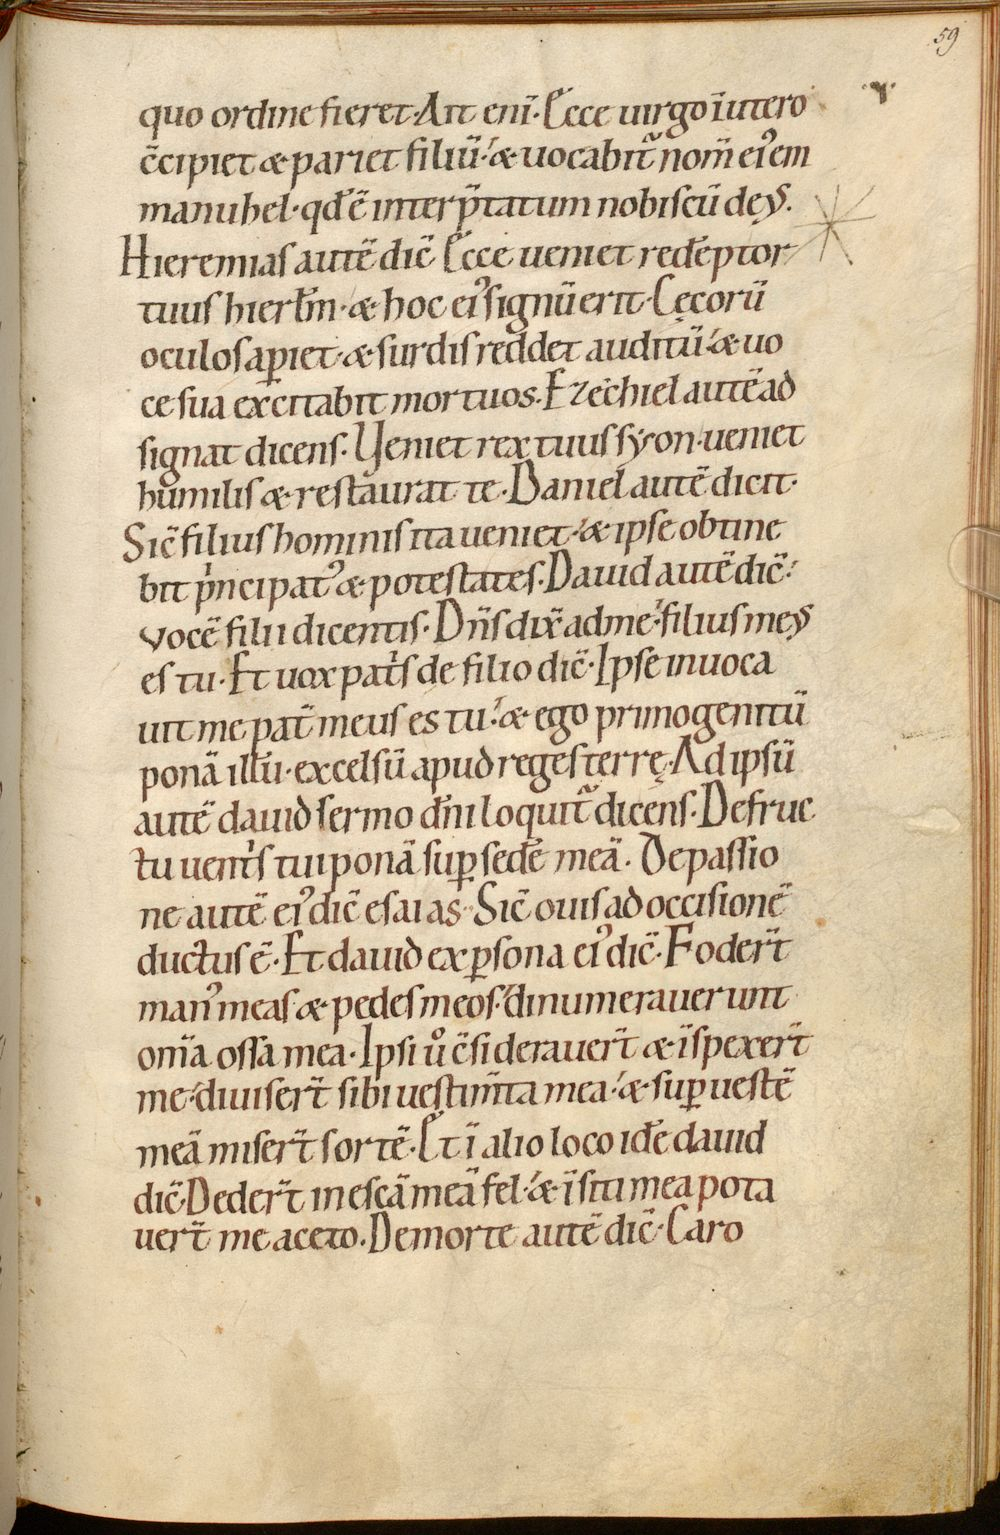 59
quo ordine fieret. Ait enī. Ecce uirgo īutero
c̄cipiet æ pariet filiū. æ uocabit᷑ nom̄ eiꝰ em
manuhel. qđ ē interp̄tatum nobiscū deus.
Hieremias autē dic̄ Ecce ueniet redēptor
tuus hierłm. æ hoc eiꝰ signū erit. Cęcorū
oculos aꝑiet. æ surdis reddet auditū. æ uo
ce sua excitabit mortuos. Ezechiel autē ad
signat dicens. Veniet rex tuus syon. ueniet
humilis æ restaurat te. Daniel autē dicit.
Sic̄ filius hominis ita ueniet. æ ipse obtine
bit pⁱncipatꝰ æ potestates. Dauid autē dic̄.
vocē filii dicentis. Dn̄s dix̄ ad me. filius meus
es tu. Et uox patⁱs de filio dic̄. Ipse inuoca
uit me pat̄ meus es tu. æ ego primogenitū
ponā illū. excelsū apud reges terrę. Ad ipsū
autē dauid sermo dn̄i loquit᷑ dicens. De fruc
tu uentⁱs tui ponā suꝑ sedē meā. De passio
ne autē eiꝰ dic̄ esaias. Sic̄ ouis ad occisionē
ductus ē. Et dauid ex ꝑsona eiꝰ dic̄. Foder̄t
manꝰ meas æ pedes meos. dinumerauerunt
omīa ossa mea. Ipsi uͦ c̄siderauer̄t æ īspexer̄t
me. diuiser̄t sibi uestim̄ta mea. æ suꝑ uestē
meā miser̄t sortē. Et ī alio loco idē dauid
dic̄. Deder̄t in escā meā fel. æ ī siti mea pota
uer̄t me aceto. De morte autē dic̄. Caro